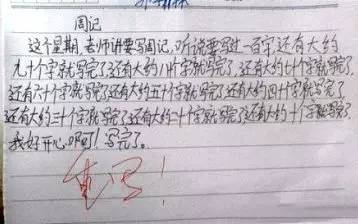 周记
这个星期,老师讲要写周记,听说要写一百字还有大约
九十个字就写完了还有大约八十个字就写完了,还有大约七十个字就写完了
还有六十个字就写完了还有大约五十个字就写完了还有大约四十个字就写完了
还有大约三十个字就写完了还有大约二十个字就写完了还有大约十个字就写完了.
我好开心啊!写完了。
重写!